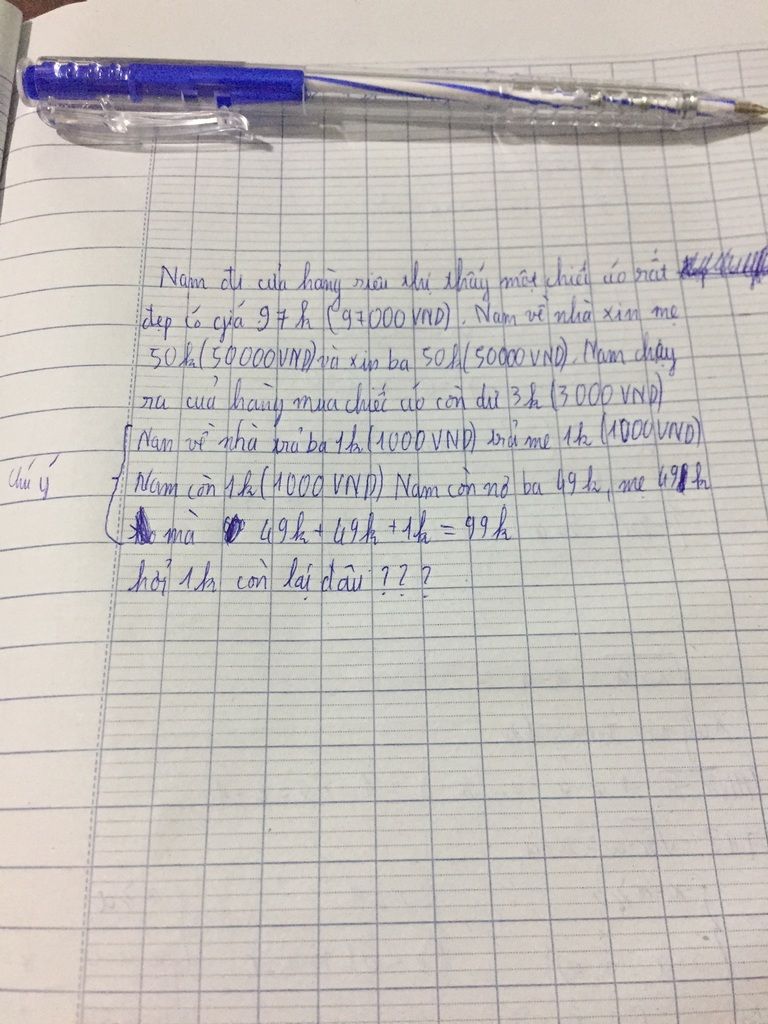 Nam đi cửa hàng siêu thị thấy một chiếc áo rất
đẹp có giá 97k (97000 VND). Nam về nhà xin mẹ
50k (50000 VND) và xin ba 50k (50000 VND). Nam chạy
ra cửa hàng mua chiếc áo còn dư 3k (3000 VND)
Nam về nhà trả ba 1k (1000 VND) trả mẹ 1k (1000 VND)
chú ý
Nam còn 1k (1000 VND) Nam còn nợ ba 49k, mẹ 49k
mà 49k + 49k + 1k = 99k
hỏi 1k còn lại đâu ???